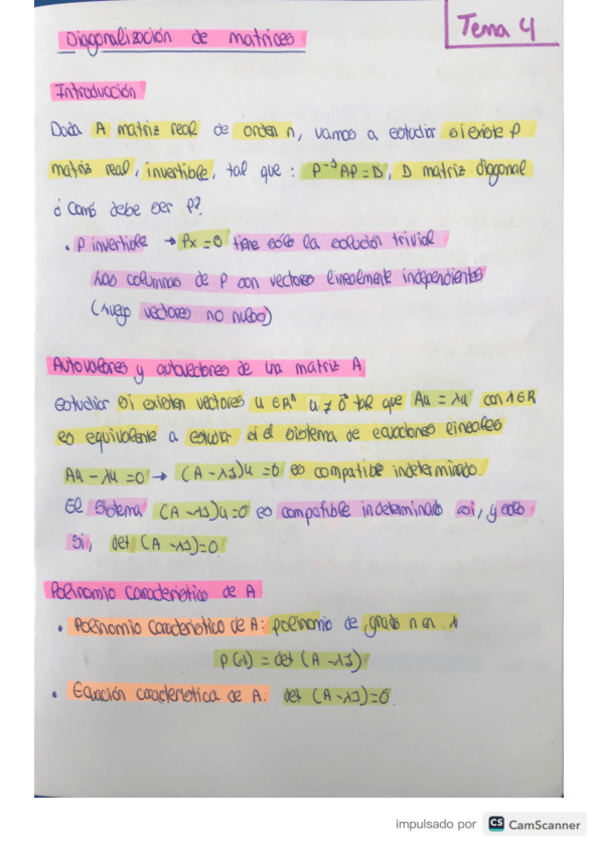 Tema 4
Diagonalización de matrices
Introducción
Dada A matriz real de orden n, vamos a estudiar si existe P
matriz real, invertible, tal que: P⁻¹AP=D, D matriz diagonal
¿Cómo debe ser P?
• P invertible → Px=0 tiene sólo la solución trivial
Las columnas de P son vectores linealmente independientes
(luego vectores no nulos)
Autovalores y autovectores de una matriz A
Estudiar si existen vectores u ∈ Rⁿ u ≠ 0⃗ tal que Au = λu con λ∈R
es equivalente a estudiar si el sistema de ecuaciones lineales
Au - λu = 0 → (A - λI)u = 0 es compatible indeterminado.
El sistema (A - λI)u=0 es compatible indeterminado si, y solo
si, det (A - λI)=0
Polinomio característico de A
• Polinomio característico de A: polinomio de grado n en λ
P(λ) = det (A - λI)
• Ecuación característica de A: det (A-λI)=0
impulsado por CS CamScanner